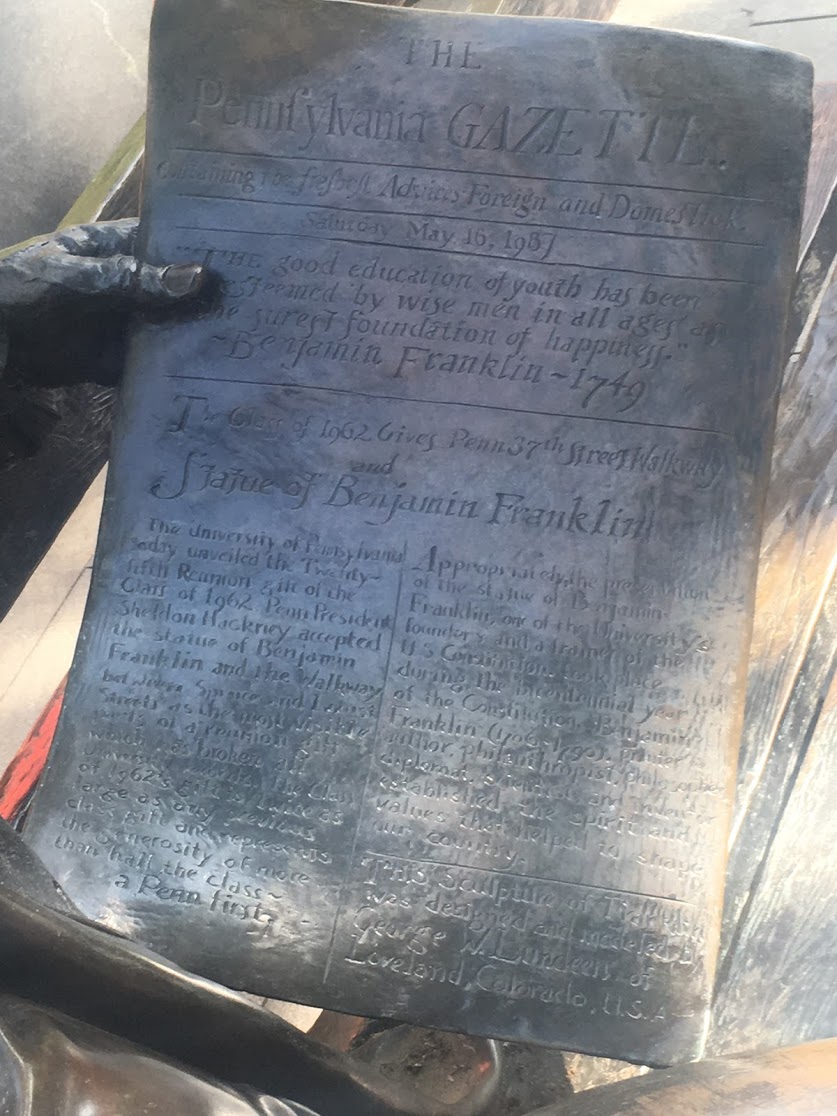 THE
Pennſylvania GAZETTE.
Containing the freſheſt Advices Foreign and Domeſtick.
Saturday May 16, 1987
"THE good education of youth has been
eſteemed by wise men in all ages as
the sureſt foundation of happineſs."
~Benjamin Franklin~1749
The Class of 1962 Gives Penn 37th Street Walkway
and
Statue of Benjamin Franklin
The University of Pennsylvania
today unveiled the Twenty-
fifth Reunion gift of the
Class of 1962. Penn President
Sheldon Hackney accepted
the statue of Benjamin
Franklin and the Walkway
between Spruce and Locust
Streets as the most visible
parts of a reunion gift
which has broken all
University records. The Class
of 1962's gift is twice as
large as any previous
class gift and represents
the generosity of more
than half the class~
a Penn first.
Appropriately, the presentation
of the statue of Benjamin
Franklin, one of the University's
founders and a framer of the
U.S. Constitution, took place
during the bicentennial year
of the Constitution. Benjamin
Franklin (1706-1790), printer,
author, philanthropist, philosopher
diplomat, scientist and inventor
established the spirit and
values that helped to shape
our country.
This Sculpture of Franklin
was designed and modeled by
George W. Lundeen of
Loveland, Colorado, U.S.A